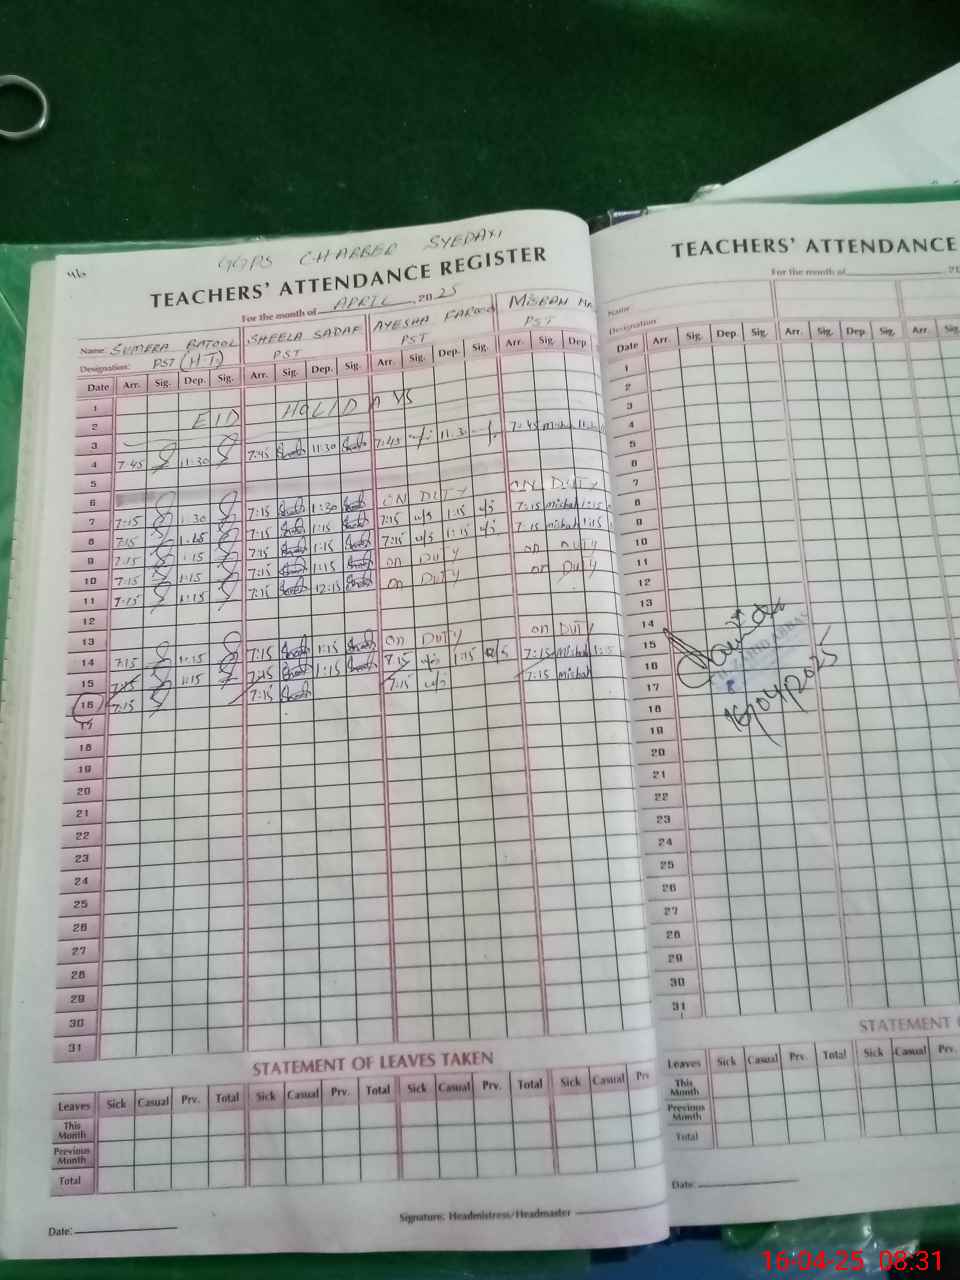 46
GGPS CHABBER SYEDAN
TEACHERS' ATTENDANCE REGISTER
For the month of APRIL, 2025
Name: SUMERA BATOOL SHEELA SADAF AYESHA FAROOQ MISBAH
Designation: PST (H.T) PST PST PST
Date Arr. Sig. Dep. Sig. Arr. Sig. Dep. Sig. Arr. Sig. Dep. Sig. Arr. Sig. Dep
1
2 EID HOLIDAYS
3
4 7:45 11:30 7:45 11:30 7:45 11:30 7:45 misbah 11:30
5
6
7 7:15 1:30 7:15 1:30 ON DUTY ON DUTY
8 7:15 1:15 7:15 1:15 7:15 1:15 7:15 misbah 1:15
9 7:15 1:15 7:15 1:15 7:15 1:15 7:15 misbah 1:15
10 7:15 1:15 7:15 1:15 on DUTY on DUTY
11 7:15 1:15 7:15 12:15 on DUTY on DUTY
12
13
14 7:15 1:15 7:15 1:15 on DUTY on DUTY
15 7:15 1:15 7:15 1:15 7:15 1:15 7:15 Misbah 1:15
16 7:15 7:15 7:15 7:15 misbah
17
18
19
20
21
22
23
24
25
26
27
28
29
30
31
STATEMENT OF LEAVES TAKEN
Leaves Sick Casual Prv. Total Sick Casual Prv. Total Sick Casual Prv. Total Sick Casual Prv
This Month
Previous Month
Total
Date:
Signature. Headmistress/Headmaster
TEACHERS' ATTENDANCE
For the month of 20
Name
Designation
Date Arr. Sig. Dep. Sig. Arr. Sig. Dep. Sig. Arr. Sig.
1
2
3
4
5
6
7
8
9
10
11
12
13
14
15
16
17
18
19
20
21
22
23
24
25
26
27
28
29
30
31
16/04/2025
STATEMENT
Leaves Sick Casual Prv. Total Sick Casual Prv.
This Month
Previous Month
Total
Date:
16-04-25 08:31